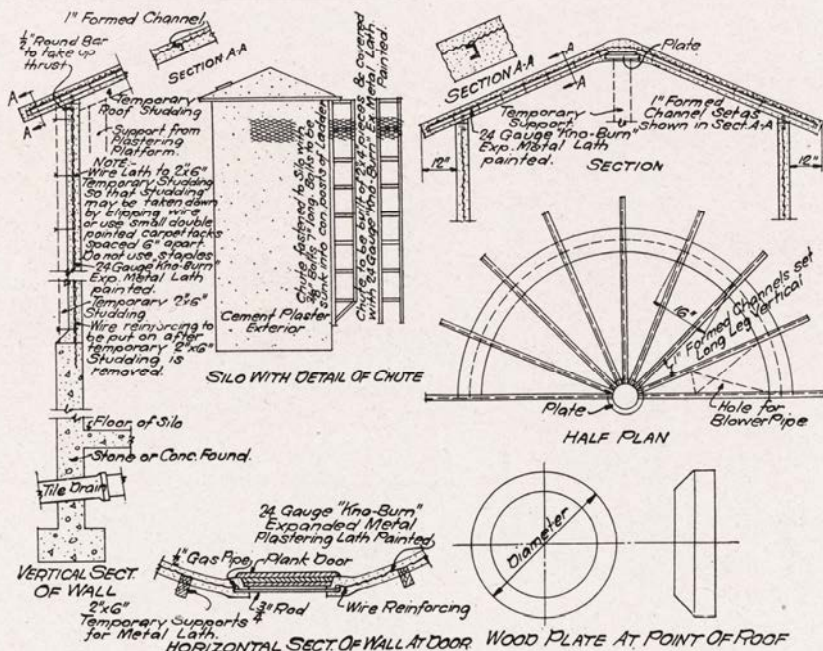 1" Formed Channel
1/2" Round Bar
to take up
thrust.
SECTION A-A
A
A
Temporary
Roof Studding
Support from
Plastering
Platform.
NOTE-
Wire Lath to 2"x6"
Temporary Studding
so that studding
may be taken down
by clipping wire
or use small double
pointed carpet tacks
spaced 6" apart.
Do not use staples
24 Gauge "Kno-Burn"
Exp. Metal Lath
painted.
Temporary 2"x6"
Studding
Wire reinforcing to
be put on after
temporary 2"x6"
Studding is
removed.
Floor of Silo
Stone or Conc. Found.
Tile Drain
VERTICAL SECT.
OF WALL
Cement Plaster
Exterior
Chute fastened to silo with
Bolts 7" long. Bolts to be
sunk into con. posts of Ladder
Chute to be built of 2"x4" pieces & covered
with 24 Gauge "Kno-Burn" Ex. Metal Lath
Painted.
SILO WITH DETAIL OF CHUTE
SECTION A-A
A
A
Plate
Temporary
Support.
24 Gauge "Kno-Burn"
Exp. Metal Lath
painted.
1" Formed
Channel Set as
shown in Sect. A-A
12"
12"
SECTION
16"
1" Formed Channels set
Long Leg Vertical
Plate
Hole for
Blower Pipe
HALF PLAN
24 Gauge "Kno-Burn"
Expanded Metal
Plastering Lath Painted
1/2" Gas Pipe
Plank Door
2"x6"
Temporary Supports
for Metal Lath.
3/4" Rod
Wire Reinforcing
HORIZONTAL SECT. OF WALL AT DOOR
Diameter
WOOD PLATE AT POINT OF ROOF